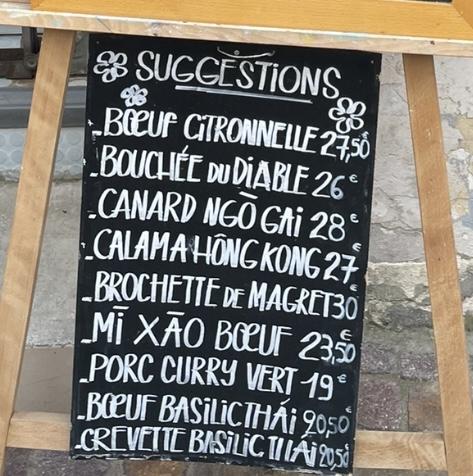 SUGGESTIONS
-BŒUF CITRONNELLE 27,50€
-BOUCHÉE DU DIABLE 26€
-CANARD NGÒ GAi 28€
-CALAMA HÔNG KONG 27€
-BROCHETTE DE MAGRET 30€
-MÌ XÃO BŒUF 23,50€
-PORC CURRY VERT 19€
-BŒUF BASILIC THÁi 20,50€
-CREVETTE BASILIC THÁi 20,50€